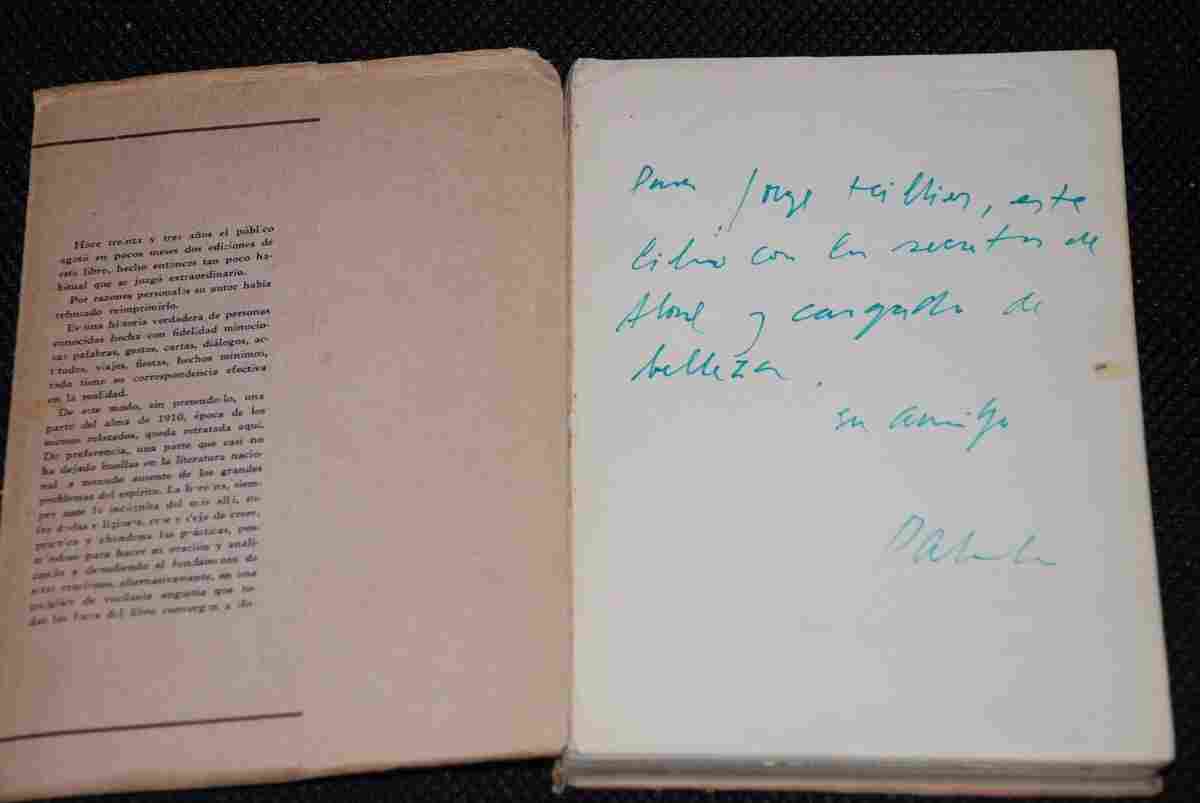 Hace treinta y tres años el público
agotó en pocos meses dos ediciones de
este libro, hecho entonces tan poco ha-
bitual que se juzgó extraordinario.
Por razones personales su autor había
rehusado reimprimirlo.
Es una historia verdadera de personas
conocidas hecha con fidelidad minucio-
sa: palabras, gestos, cartas, diálogos, ac-
titudes, viajes, fiestas, hechos mínimos,
todo tiene su correspondencia efectiva
en la realidad.
De este modo, sin pretenderlo, una
parte del alma de 1910, época de los
sucesos relatados, queda retratada aquí.
De preferencia, una parte que casi no
ha dejado huellas en la literatura nacio-
nal a menudo ausente de los grandes
problemas del espíritu. La heroína, siem-
pre ante la incógnita del más allá, su-
fre dudas religiosas, cree y deja de creer,
practica y abandona las prácticas,
para hacer su oración y anali-
zando y demoliendo el fundamento de
estas oraciones, alternativamente, en una
de vacilante angustia que to-
das las faces del libro convergen a
Para Jorge Teillier, este
libro con los secretos de
Alone y cargado de
belleza.
su amigo